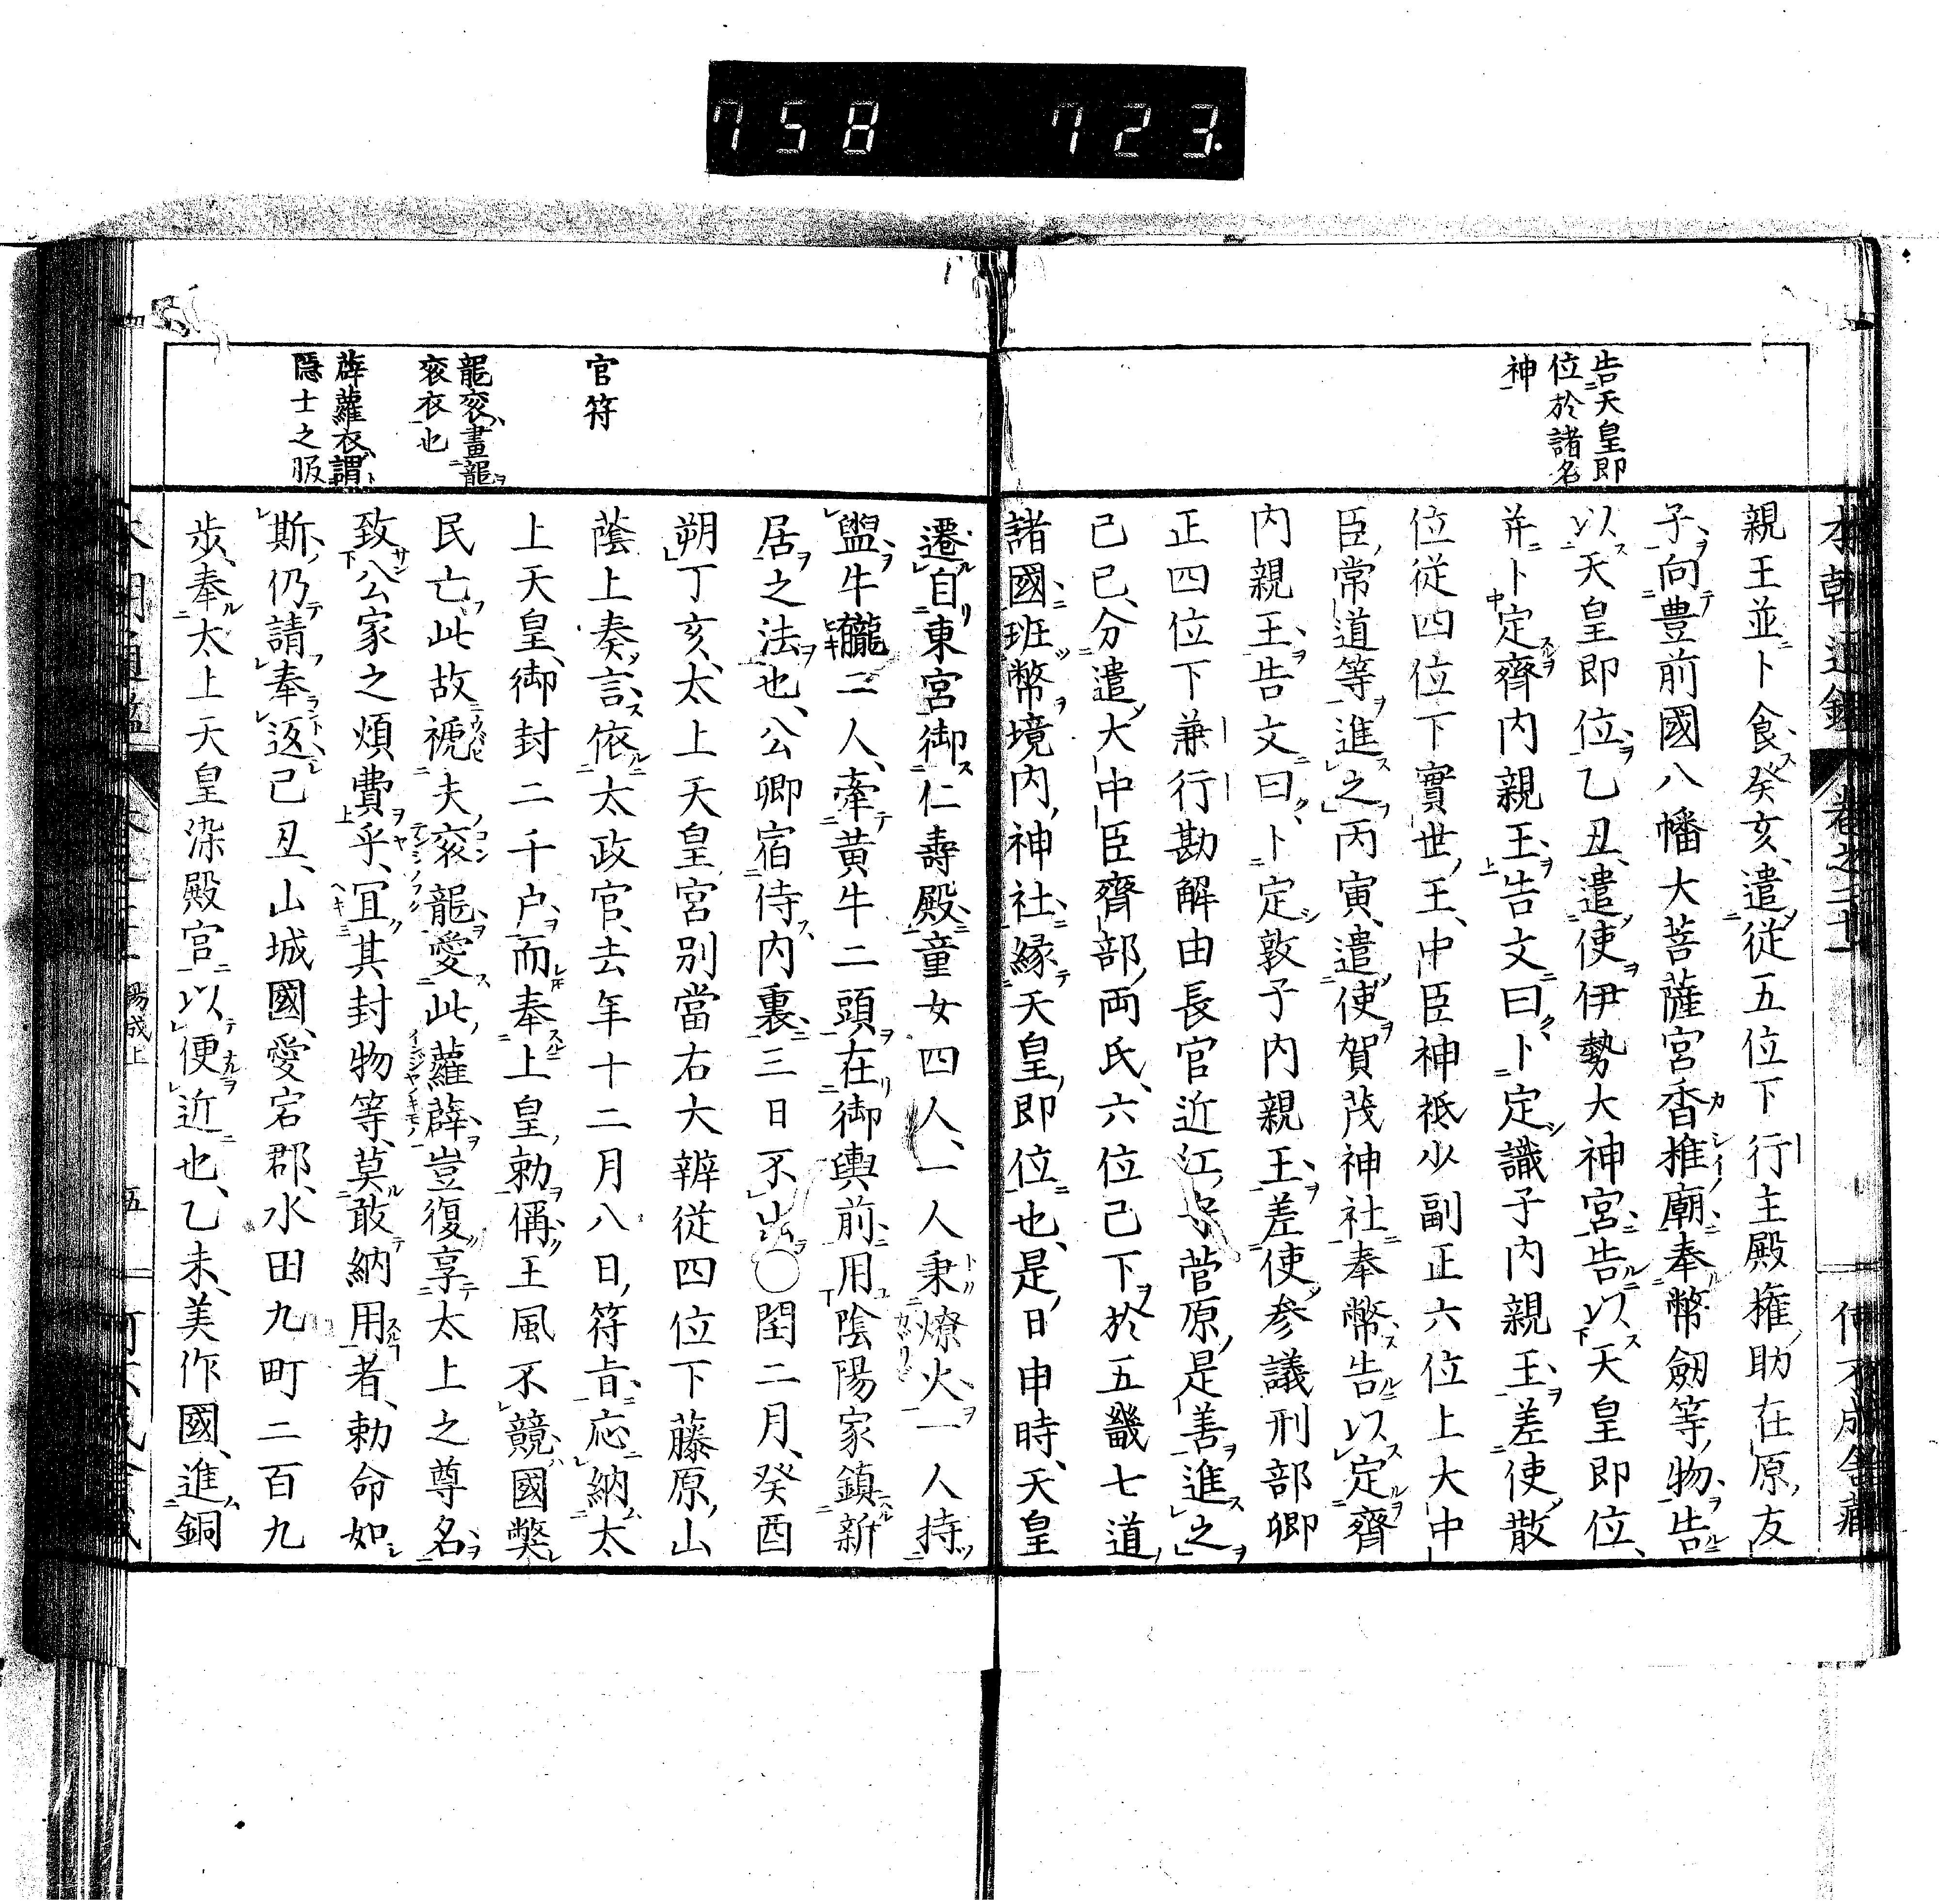 758 723.
本朝通鑑 卷之二十
告天皇即
位於諸名
神
親王並卜食癸亥遣從五位下行主殿權助在原友
子向豊前國八幡大菩薩宮香椎廟奉幣劔等物告
以天皇即位乙丑遣使伊勢大神宮告以天皇即位
并卜定齊內親王告文曰卜定識子內親王差使散
位從四位下實世王中臣神祇少副正六位上大中
臣常道等進之丙寅遣使賀茂神社奉幣告以定齊
內親王告文曰卜定敦子內親王差使參議刑部卿
正四位下兼行勘解由長官近江守菅原是善進之
己巳分遣大中臣齊部兩氏六位已下於五畿七道
諸國班幣境内神社縁天皇即位也是日申時天皇
遷自東宮御仁壽殿童女四人一人秉燎火一人持
盥牛朧二人牽黃牛二頭在御輿前用陰陽家鎮新
居之法也公卿宿侍內裏三日不出○閏二月癸酉
朔丁亥太上天皇宮別當右大辨從四位下藤原山
蔭上奏言依太政官去年十二月八日符旨応納太
上天皇御封二千户而奉上皇勅偁王風不競國弊
民亡此故褫夫衮龍愛此蘿薜豈復享太上之尊名
致公家之煩費乎宜其封物等莫敢納用者勅命如
斯仍請奉返己丑山城國愛宕郡水田九町二百九
步奉太上天皇染殿宮以便近也乙未美作國進銅
官符
龍衮畫龍
衮衣也
薜蘿衣謂
隱士之服
陽成上 五